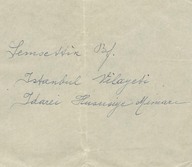 Şemsettin By.
İstanbul Vilayeti
İdarei Hususiye Mimarı